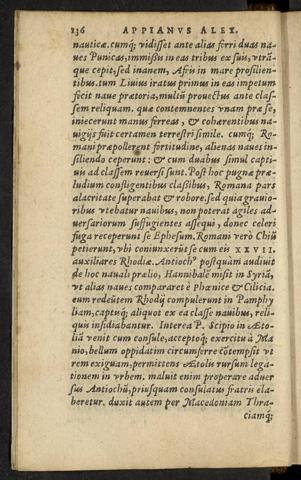 136 APPIANVS ALEX.
nauticæ. cumq́; vidisset ante alias ferri duas na-
ues Punicas, immissis in eas tribus ex suis, vtrã-
que cepit, sed inanem, Afris in mare prosilien-
tibus. tum Liuius iratus primus in eas impetum
fecit naue prætoria, multũ prouectus ante clas-
sem reliquam. quæ contemnentes vnam præ se,
iniecerunt manus ferreas, & cohærentibus na-
uigijs fuit certamen terrestri simile. cumq́; Ro-
mani præpollerent fortitudine, alienas naues in-
siliendo ceperunt: & cum duabus simul capti-
uis ad classem reuersi sunt. Post hoc pugnæ præ-
ludium confligentibus classibus, Romana pars
alacritate superabat & robore. sed quia grauio-
ribus vtebatur nauibus, non poterat agiles ad-
uersariorum suffugientes assequi, donec celeri
fuga receperunt se Ephesum. Romani verò Chiũ
petierunt, vbi coniunxerũt se cum eis XXVII.
auxiliares Rhodiæ. Antiochꝰ postquam audiuit
de hoc nauali prælio, Hannibalẽ misit in Syriã,
vt alias naues compararet è Phœnice & Cilicia.
eum redeũtem Rhodij compulerunt in Pamphy
liam, captisq́; aliquot ex ea classe nauibus, reli-
quis insidiabantur. Interea P. Scipio in Ætò-
liã venit cum consule, acceptoq́; exercitu à Ma
nio, bellum oppidatim circumferre cõtempsit vt
rem exiguam, permittens Ætolis rursum lega-
tionem in vrbem. maluit enim properare aduer
sus Antiochũ, priusquam consulatus fratris ela-
beretur. duxit autem per Macedoniam Thra-
ciamq́;